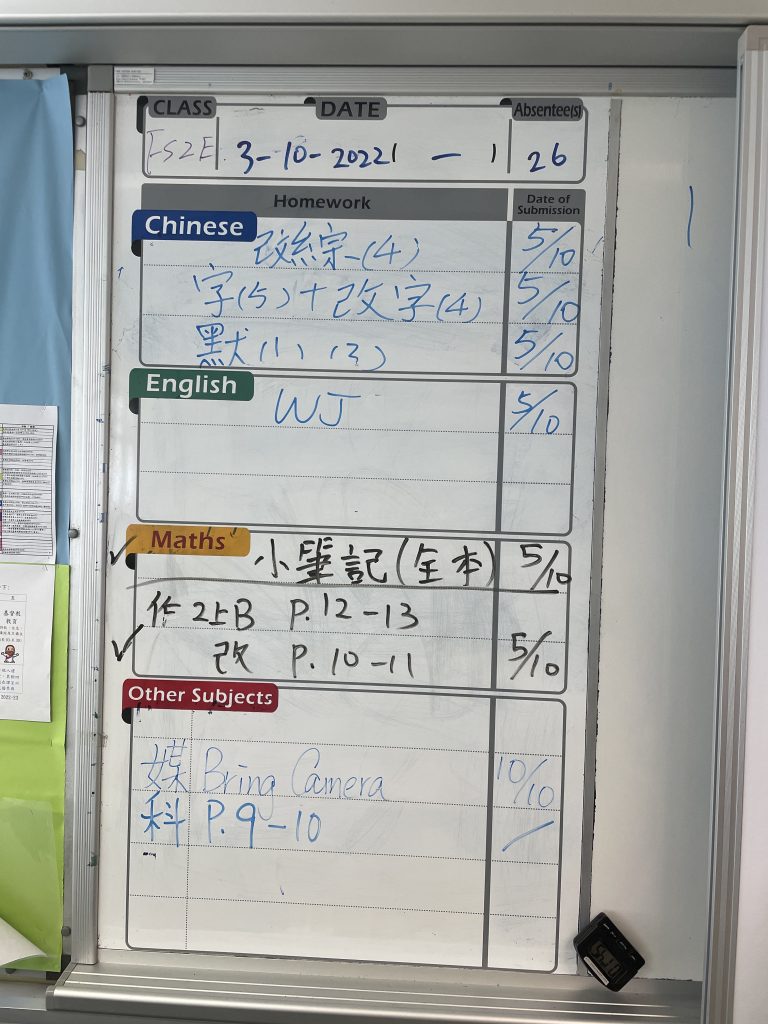 CLASS DATE Absentee(s)
3-10-2022 — 26
Homework Date of Submission
Chinese
改綜-(4) 5/10
字(5)+改字(4) 5/10
默(1)、(3) 5/10
English
WJ 5/10
Maths
小筆記(全本) 5/10
作 2上B P.12-13
改 P.10-11 5/10
Other Subjects
媒 Bring Camera 10/10
科 P.9-10
基督教
教育
2022-23